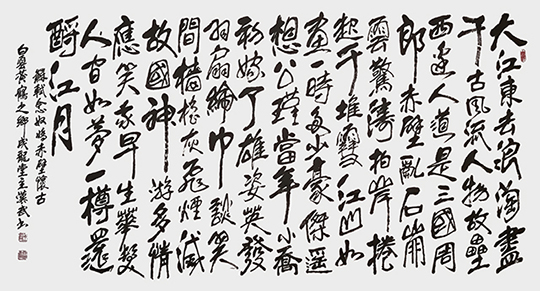 大江東去浪淘盡
千古風流人物故壘
西邊人道是三國周
郎赤壁亂石崩
雲驚濤拍岸捲
起千堆雪江山如
畫一時多少豪傑遥
想公瑾當年小喬
初嫁了雄姿英發
羽扇綸巾談笑
間檣櫓灰飛煙滅
故國神游多情
應笑我早生華髮
人間如夢一樽還
酹江月
蘇軾念奴嬌赤壁懷古
白雲黄鶴之鄉龍堂主漢武書